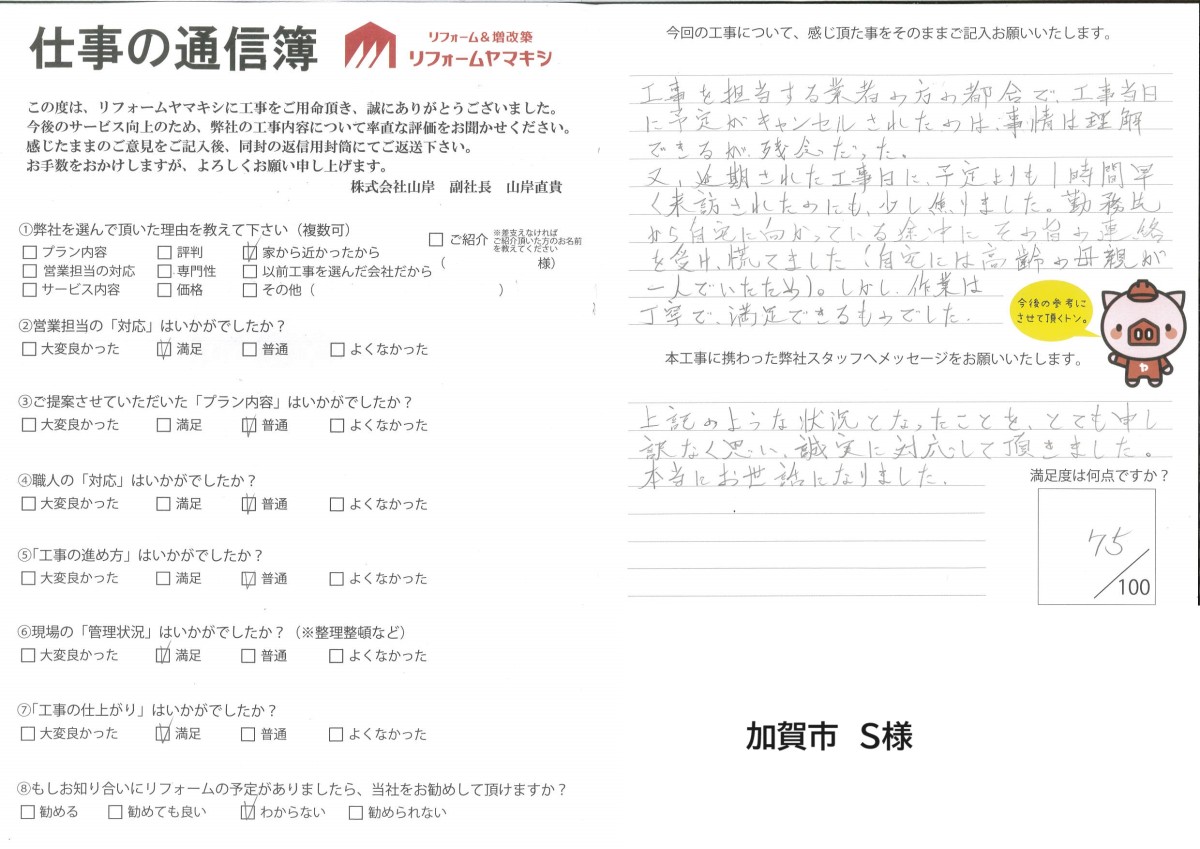 仕事の通信簿
リフォーム&増改築
リフォームヤマキシ
この度は、リフォームヤマキシに工事をご用命頂き、誠にありがとうございました。
今後のサービス向上のため、弊社の工事内容について率直な評価をお聞かせください。
感じたままのご意見をご記入後、同封の返信用封筒にてご返送下さい。
お手数をおかけしますが、よろしくお願い申し上げます。
株式会社山岸 副社長 山岸直貴
①弊社を選んで頂いた理由を教えて下さい(複数可)
□プラン内容 □評判 ☑家から近かったから □ご紹介 ※差支えなければ
ご紹介頂いた方のお名前
を教えてください
□営業担当の対応 □専門性 □以前工事を選んだ会社だから ( 様)
□サービス内容 □価格 □その他( )
②営業担当の「対応」はいかがでしたか?
□大変良かった ☑満足 □普通 □よくなかった
③ご提案させていただいた「プラン内容」はいかがでしたか?
□大変良かった □満足 ☑普通 □よくなかった
④職人の「対応」はいかがでしたか?
□大変良かった □満足 ☑普通 □よくなかった
⑤「工事の進め方」はいかがでしたか?
□大変良かった □満足 ☑普通 □よくなかった
⑥現場の「管理状況」はいかがでしたか?(※整理整頓など)
□大変良かった ☑満足 □普通 □よくなかった
⑦「工事の仕上がり」はいかがでしたか?
□大変良かった ☑満足 □普通 □よくなかった
⑧もしお知り合いにリフォームの予定がありましたら、当社をお勧めして頂けますか?
□勧める □勧めても良い ☑わからない □勧められない
今回の工事について、感じ頂た事をそのままご記入お願いいたします。
工事を担当する業者の方の都合で、工事当日
に予定がキャンセルされたのは、事情は理解
できるが、残念だった。
又、延期された工事日に、予定よりも1時間早
く来訪されたのにも、少し焦りました。勤務先
から自宅に向かっている途中にその旨の連絡
を受け、慌てました(自宅には高齢の母親が
一人でいたため)。しかし、作業は
丁寧で、満足できるものでした.
今後の参考に
させて頂くトン。
ヤ
本工事に携わった弊社スタッフへメッセージをお願いいたします。
上記のような状況となったことを、とても申し
訳なく思い、誠実に対応して頂きました。
本当にお世話になりました.
満足度は何点ですか?
75
/100
加賀市 S様